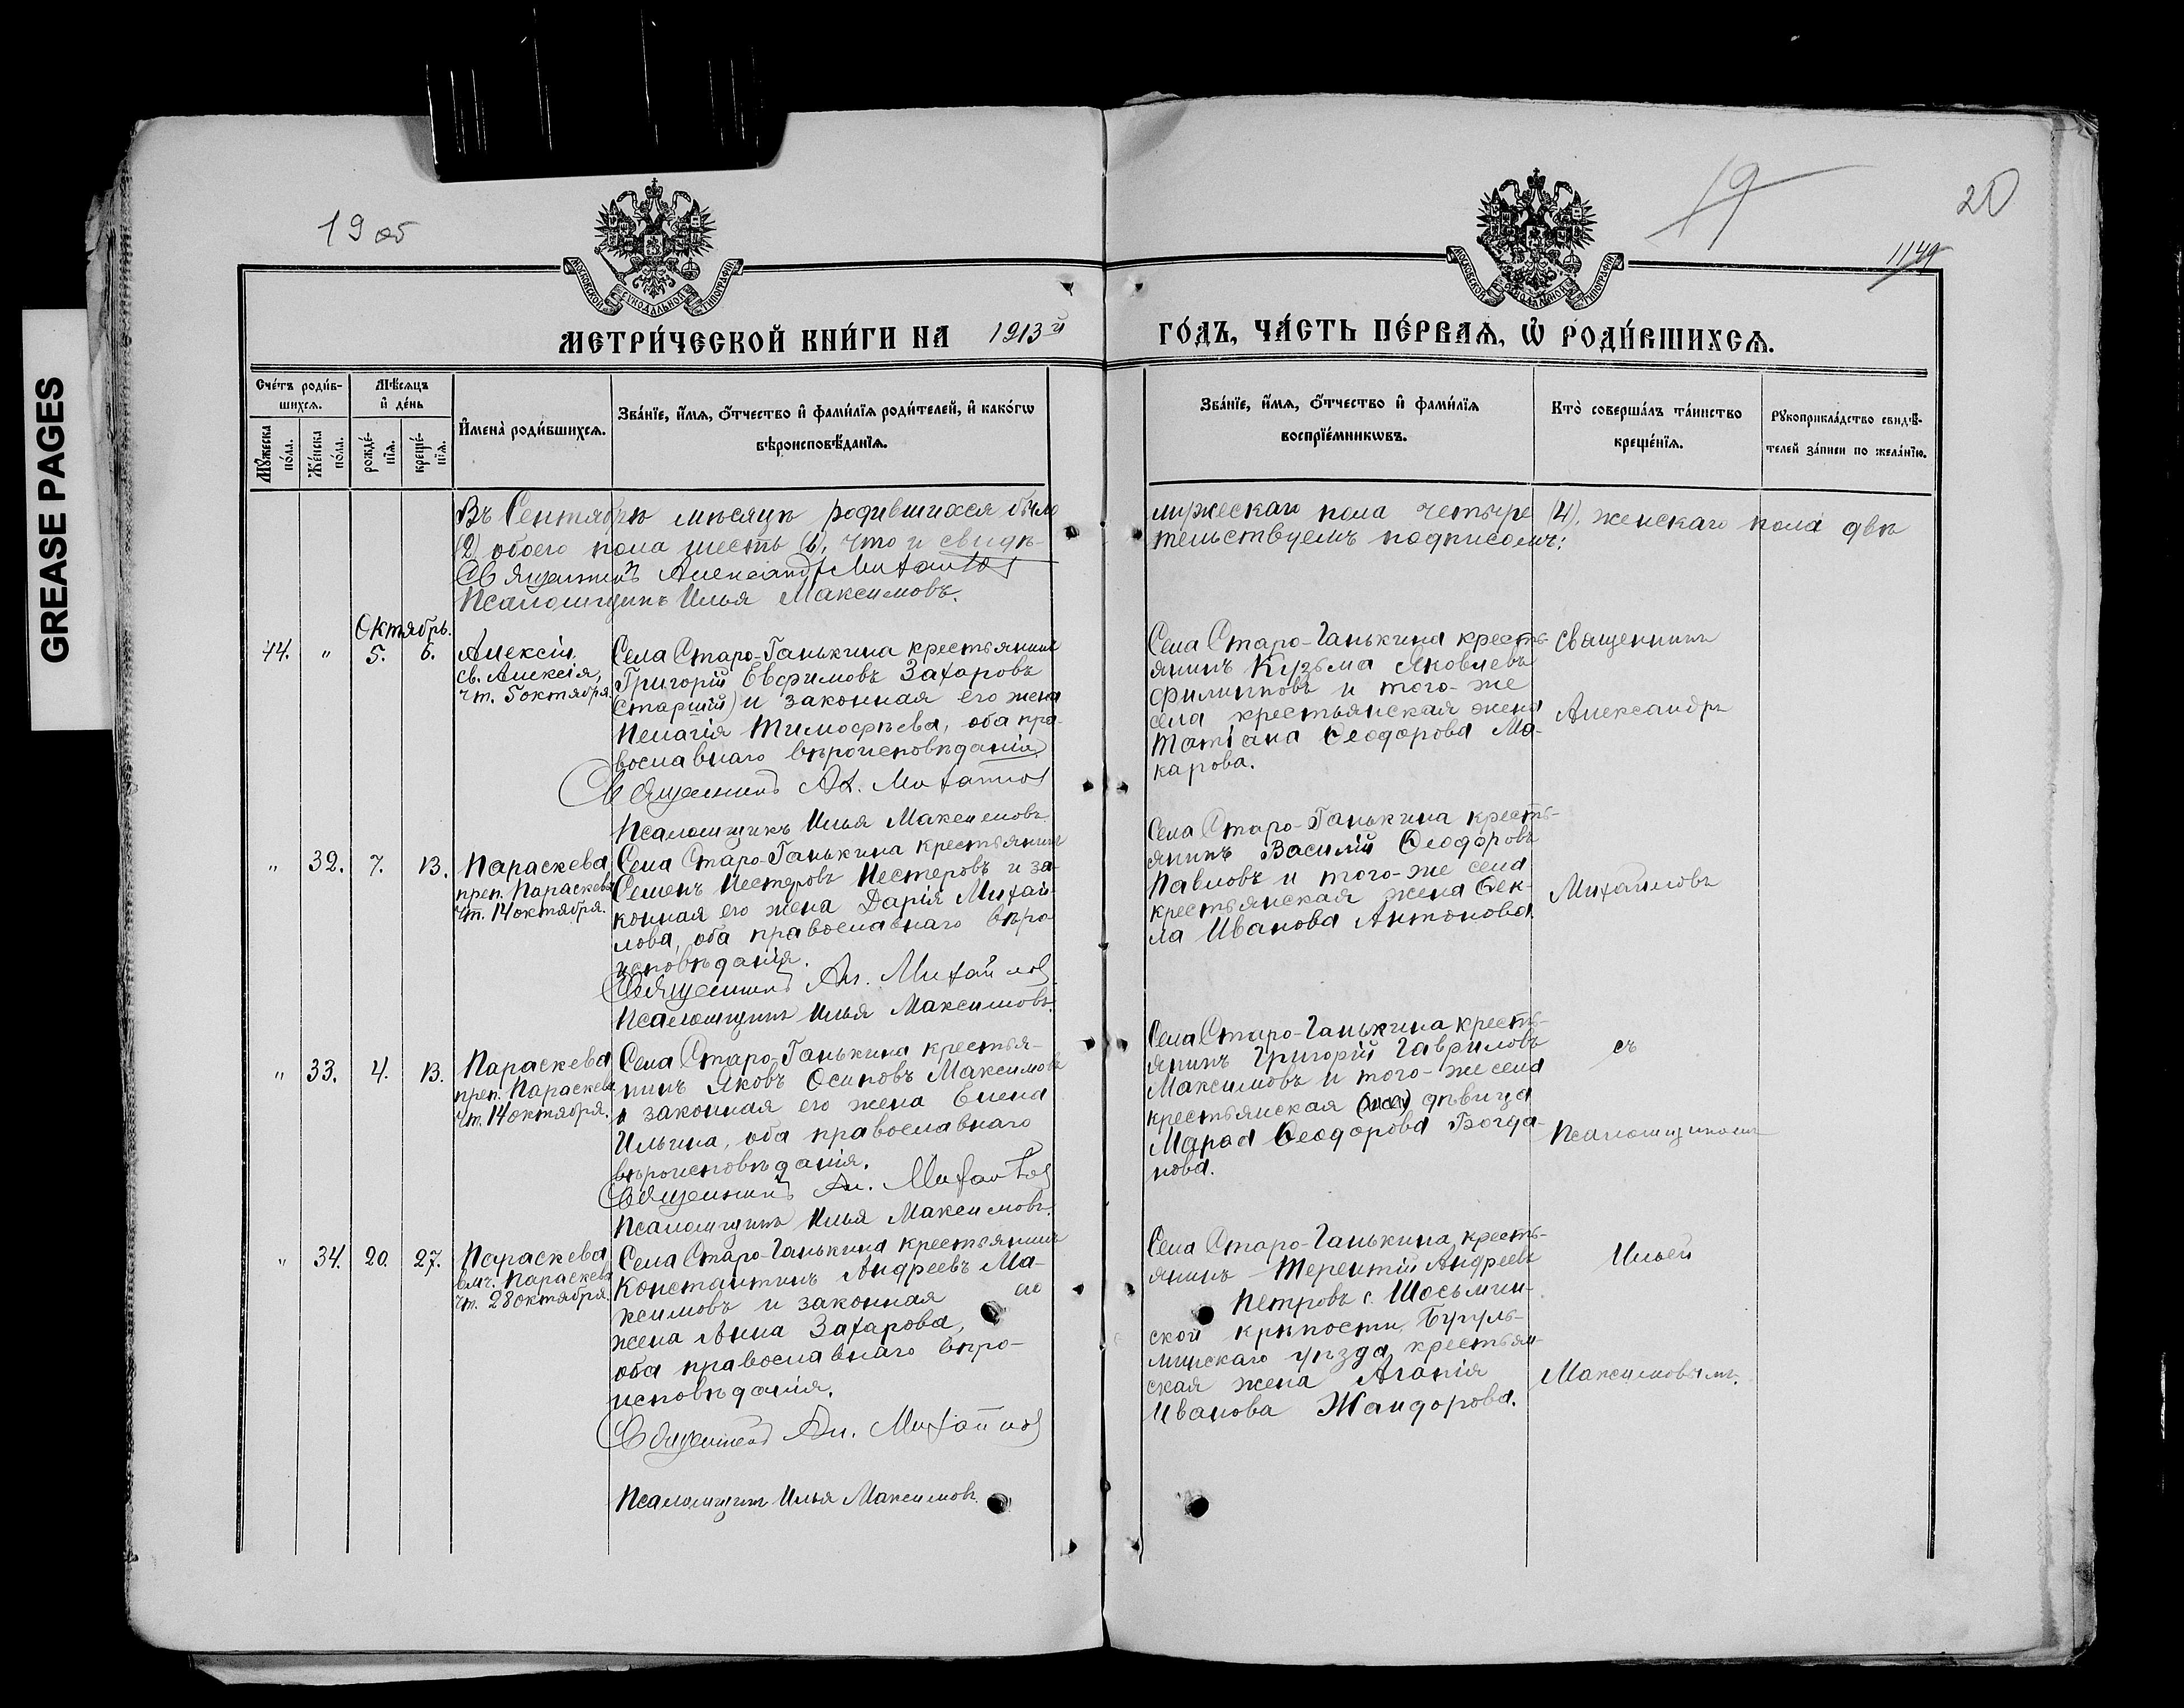 GREASE PAGES
19 об
19
20
1149
МОСКОВСКОЙ СѴНОДАЛЬНОЙ ТИПОГРАФІИ
МОСКОВСКОЙ СѴНОДАЛЬНОЙ ТИПОГРАФІИ
МЕТРИ́ЧЕСКОЙ КНИ́ГИ НА 1913й
ГО́ДЪ, ЧА́СТЬ ПЕ́РВАѦ, Ѡ҆ РОДИ́ВШИХСѦ.
Сче́тъ роди́в-
шихсѧ.
Мѣ́сѧцъ
и҆ де́нь
Мꙋ́жеска
по́ла.
Же́нска
по́ла.
рожде́-
нїѧ.
креще́-
нїѧ.
И҆мена̀ роди́вшихсѧ.
Зва́нїе, и҆́мѧ, ѻ҆́тчество и҆ фами́лїѧ роди́телей, и҆ како́гѡ
вѣроисповѣ́данїѧ.
Зва́нїе, и҆́мѧ, ѻ҆́тчество и҆ фами́лїѧ
воспрїе́мникѡвъ.
Кто̀ соверша́лъ та́инство
креще́нїѧ.
Рꙋкоприкла́дство свидѣ́-
телей за́писи по жела́нїю.
Въ Сентябрѣ мѣсяцѣ родившихся было
мужескаго пола четыре (4), женскаго пола двѣ
(2) обоего пола шесть (6), что и свидѣ-
тельствуемъ подписомъ:
Священникъ Александръ Михайловъ
Псаломщикъ Илья Максимовъ.
Октябрь.
44. " 5. 6.
Алексій
св. Алексія,
чт. 5 октября.
Села Старо-Ганькина крестьянинъ
Григорій Евфимовъ Захаровъ
(старшій) и законная его жена
Пелагія Тимофѣева, оба пра-
вославнаго вѣроисповѣданія
Священникъ Ал. Михайловъ
Псаломщикъ Илья Максимовъ.
Села Старо-Ганькина кресть-
янинъ Кузьма Яковлевъ
Филипповъ и того-же
села крестьянская жена
Татіана Ѳеодорова Ма-
карова.
Священникъ
Александръ
" 32. 7. 13.
Параскева
преп. Параскевы
чт. 14 октября.
Села Старо-Ганькина крестьянинъ
Семенъ Нестеровъ Нестеровъ и за-
конная его жена Дарія Михай-
лова, оба православнаго вѣро-
исповѣданія.
Священникъ Ал. Михайловъ
Псаломщикъ Илья Максимовъ.
Села Старо-Ганькина кресть-
янинъ Василій Ѳеодоровъ
Павловъ и того-же села
крестьянская жена Ѳек-
ла Иванова Антонова
Михайловъ
" 33. 4. 13.
Параскева
преп. Параскевы
чт. 14 октября.
Села Старо-Ганькина крестья-
нинъ Яковъ Осиповъ Максимовъ
и законная его жена Елена
Ильина, оба православнаго
вѣроисповѣданія.
Священникъ Ал. Михайловъ
Псаломщикъ Илья Максимовъ.
Села Старо-Ганькина кресть-
янинъ Григорій Гавриловъ
Максимовъ и того-же села
крестьянская дѣвица
Ѳеодорова Богда-
нова.
съ
Псаломщикомъ
" 34. 20. 27.
Параскева
вмч. Параскевы
чт. 28 октября.
Села Старо-Ганькина крестьянинъ
Константинъ Андреевъ Ма-
ксимовъ и законная его
жена Анна Захарова,
оба православнаго вѣро-
исповѣданія.
Священникъ Ал. Михайловъ
Псаломщикъ Илья Максимовъ
Села Старо-Ганькина кресть-
янинъ Терентій Андреевъ
Петровъ с. Шосьмин-
ской крѣпости, Бугуль-
минскаго уѣзда, крестьян-
ская жена Агапія
Иванова Жандорова.
Ильей
Максимовымъ.